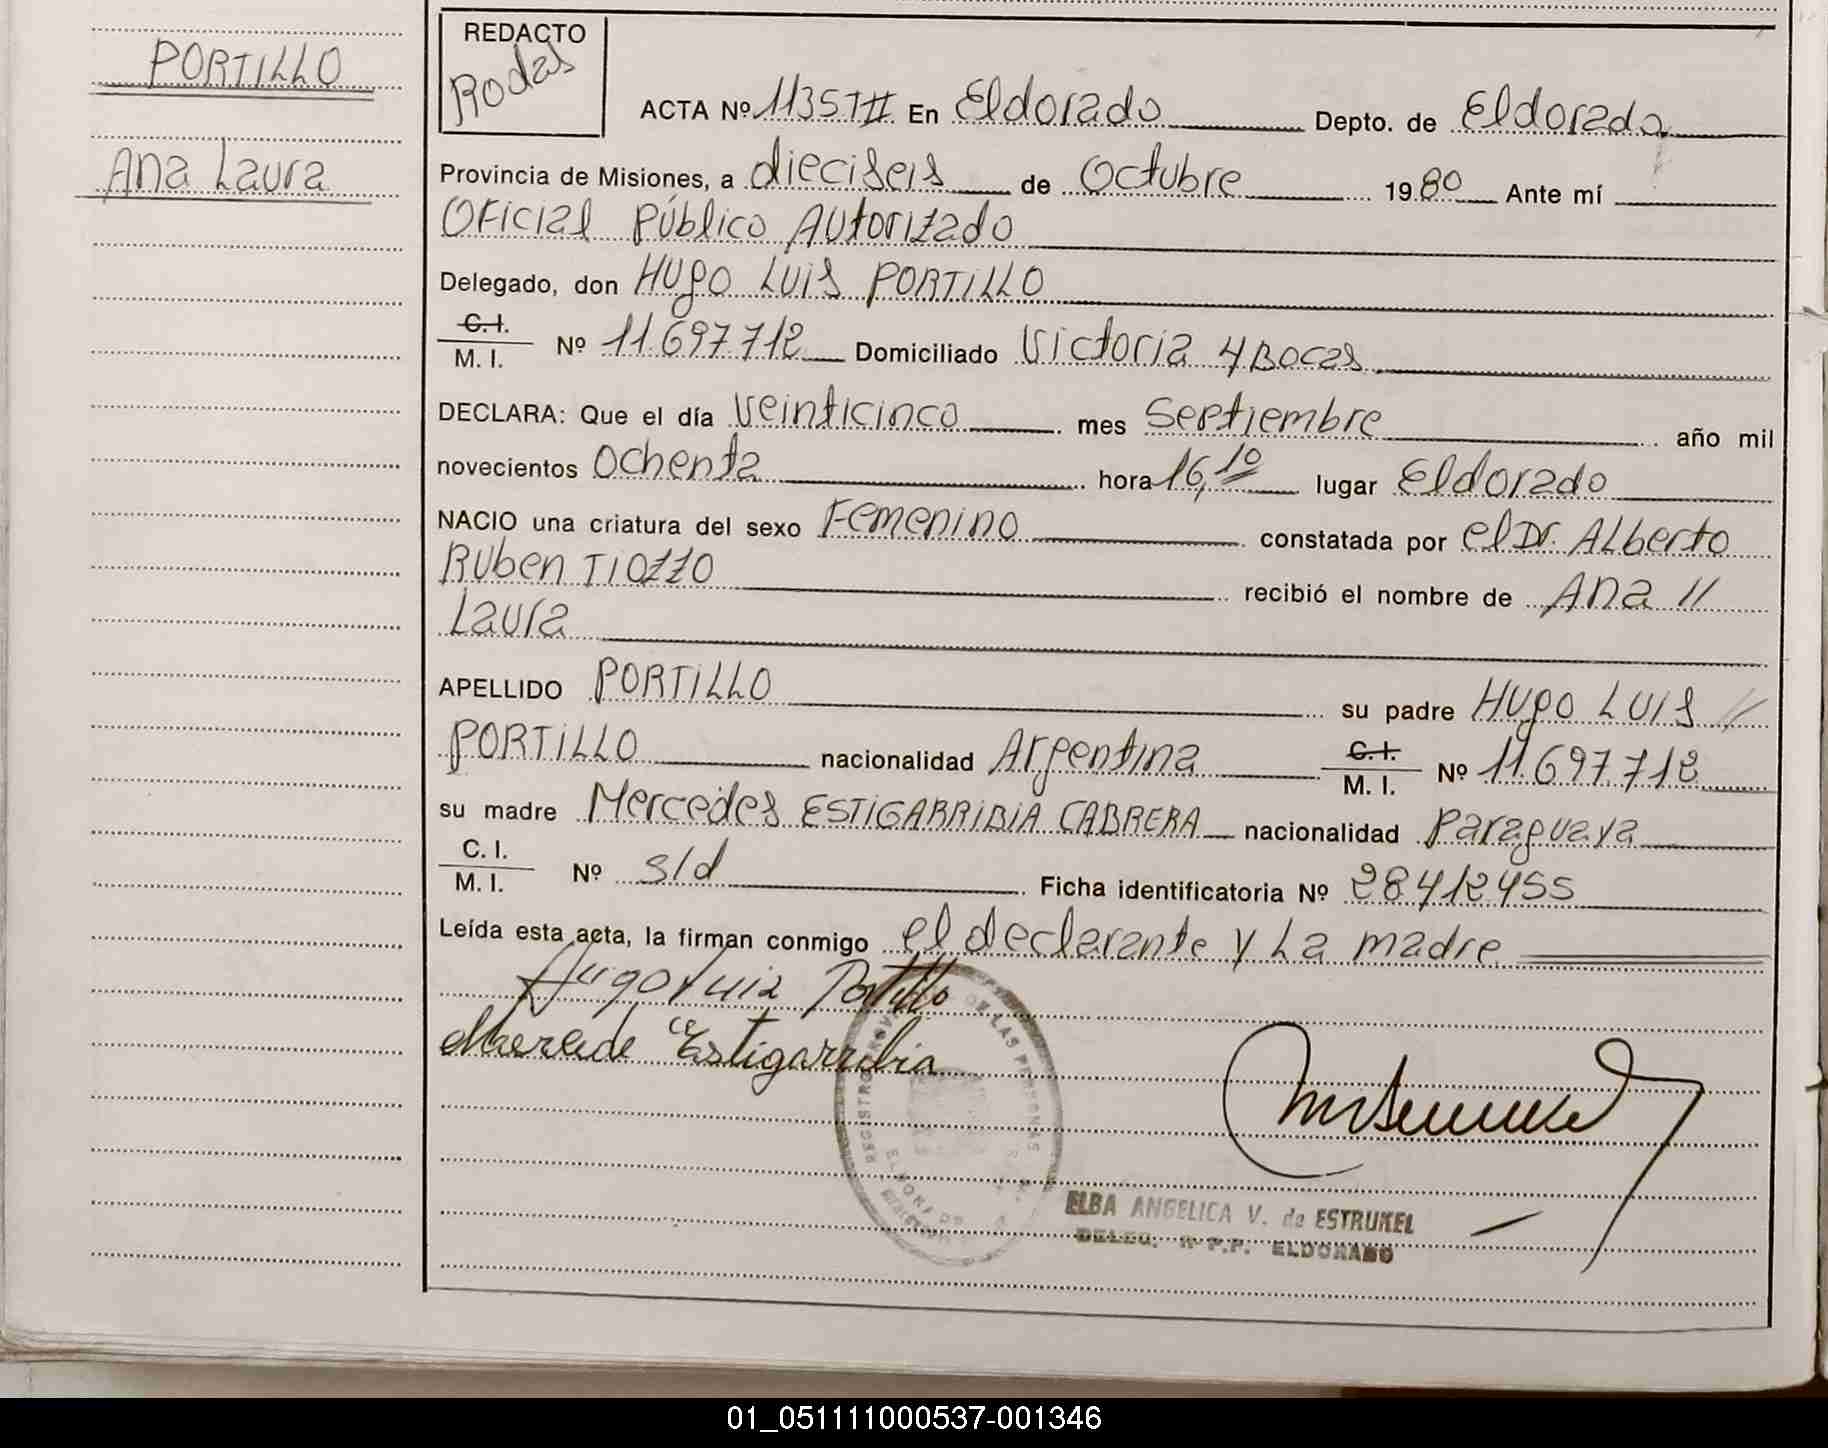 PORTILLO
Ana Laura
REDACTO
Rodas
ACTA Nº 1135 TII En Eldorado Depto. de Eldorado
Provincia de Misiones, a dieciseis de Octubre 1980 Ante mí
Oficial Público Autorizado
Delegado, don Hugo Luis PORTILLO
C.I. / M. I. Nº 11.697.712 Domiciliado Victoria 4 Bocas
DECLARA: Que el día veinticinco mes Septiembre año mil
novecientos Ochenta hora 16,10 lugar Eldorado
NACIO una criatura del sexo Femenino constatada por el Dr. Alberto
Ruben TIOZZO recibió el nombre de Ana //
Laura
APELLIDO PORTILLO su padre Hugo Luis //
PORTILLO nacionalidad Argentina C.I. / M. I. Nº 11.697.712
su madre Mercedes ESTIGARRIBIA CABRERA nacionalidad Paraguaya
C. I. / M. I. Nº s/d Ficha identificatoria Nº 28412455
Leída esta acta, la firman conmigo el declarante y La madre
Hugo Luis Portillo
Mercede Estigarribia
REGISTRO DE LAS PERSONAS
ELDORADO
ELBA ANGELICA V. de ESTRUKEL
DELEG. R.P.P. ELDORADO
01_051111000537-001346